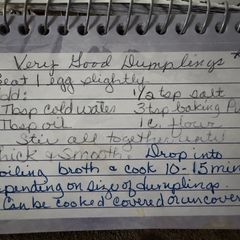 Very Good Dumplings *
Beat 1 egg slightly
Add: 1/2 tsp salt
Tbsp cold water 3 tsp baking Pu
Tbsp oil 1 c. flour
Stir all together until
thick & smooth. Drop into
boiling broth & cook 10-15 min
depending on size of dumplings.
Can be cooked covered or uncover